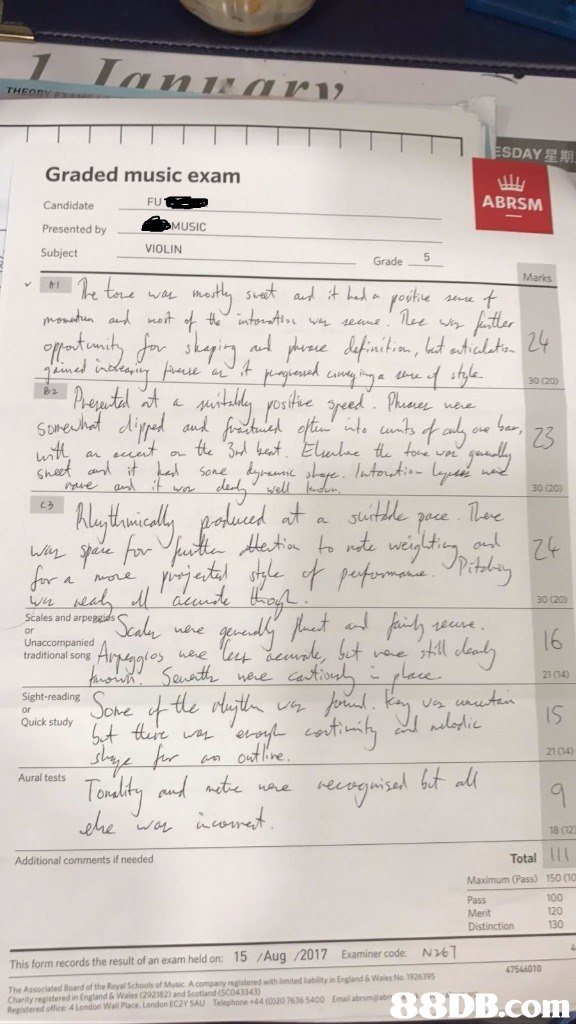 January
THEORY EXAM
ESDAY 星期
Graded music exam
ABRSM
Candidate FU
Presented by MUSIC
Subject VIOLIN
Grade 5
Marks
A1 The tone was mostly sweet and it had a positive sense of
momentum and most of the intonation was secure. There was further
opportunity for shaping and phrase definition, but articulation 24
gained increasing finesse as it progressed conveying a sense of style.
30 (20)
B2 Presented at a suitably positive speed. Phrases were
somewhat clipped and fractured often into units of only one bar, 23
with an accent on the 3rd beat. Elsewhere the tone was generally
sweet and it had some dynamic shape. Intonation lapses were
rare and it was clearly well known.
30 (20)
C3 Rhythmically produced at a suitable pace. There
was space for further attention to note weighting and 24
for a more projected style of performance. Pitching
was nearly all accurate though.
30 (20)
Scales and arpeggios
or
Unaccompanied
traditional song
Scales were generally fluent and fairly secure.
Arpeggios were less accurate, but were still clearly 16
known. Sevenths were cautiously in place.
21 (14)
Sight-reading
or
Quick study
Some of the rhythm was found. Key was uncertain
but there was enough continuity and melodic 15
shape for an outline.
21 (14)
Aural tests
Tonality and metre were recognised but all 9
else was incorrect.
18 (12)
Additional comments if needed
Total 111
Maximum (Pass) 150 (10
Pass 100
Merit 120
Distinction 130
This form records the result of an exam held on: 15 /Aug /2017 Examiner code: N267
47546010
The Associated Board of the Royal Schools of Music. A company registered with limited liability in England & Wales No. 1926395
Charity registered in England & Wales (292182) and Scotland (SC043343)
Registered office: 4 London Wall Place, London EC2Y 5AU Telephone +44 (0)20 7636 5400 Email abrsm@abr
88DB.com